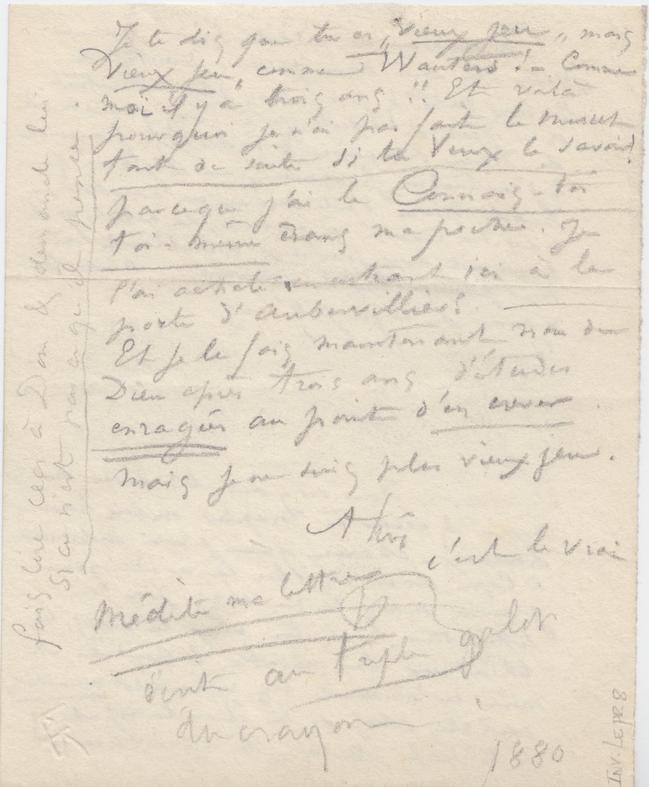 Je te dis que tu es „vieux jeu„ mais
vieux jeu, comme Wauters! – Comme
moi il y a trois ans!! Et voilà
pourquoi je n'ai pas fait le
tout de suite si tu veux le savoir!
parceque j'ai le Connais-toi
toi-même dans ma poche. Je
l'ai acheté en entrant ici à la
porte d'Aubervilliers.
Et je le sais maintenant nom de
Dieu après trois ans d'études
enragées au point d'en crever.
Mais je ne suis plus vieux jeu.
A toi
c'est le vrai
Médite ma lettre
écrite au triple galop
du crayon
1880
fais lire ceci à Dom & demande lui
si ce n'est pas ce qu'il pense.